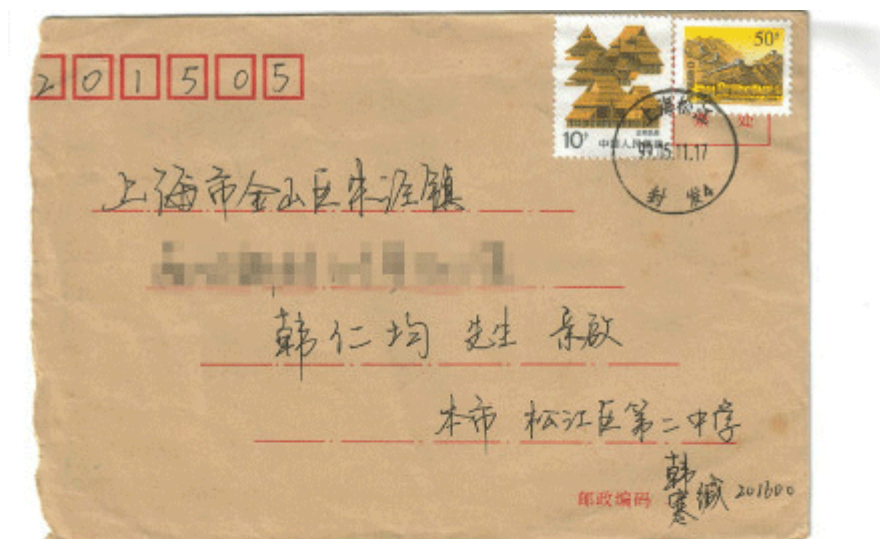 201505
50分
10分
中国人民邮政
上海松江
99.05.11.17
封发
处
上海市金山区朱泾镇
韩仁均 先生 亲启
本市 松江区第二中学
邮政编码
韩寒缄 201600